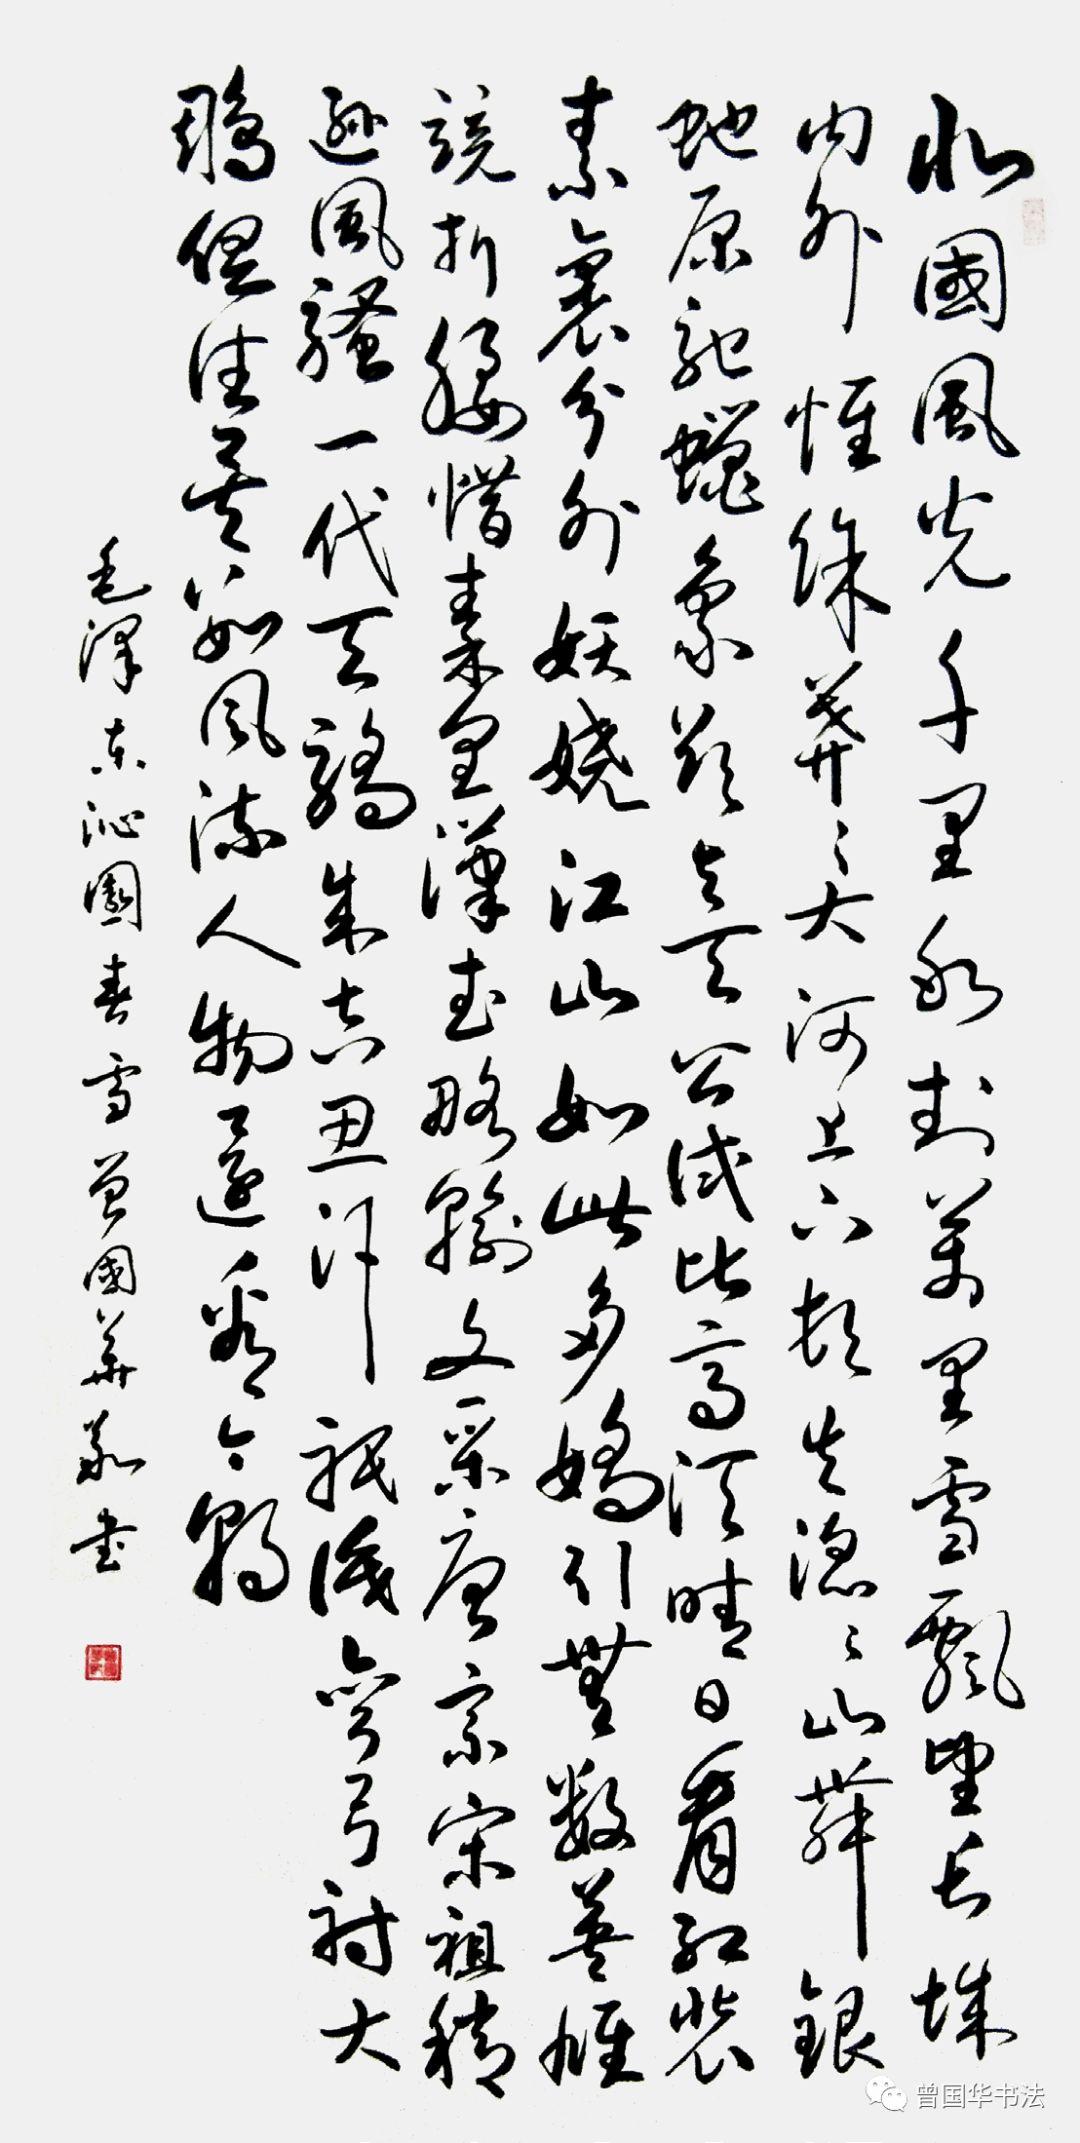 北國風光千里冰封萬里雪飄望長城
內外惟餘莽〻大河上下頓失滔〻山舞銀
蛇原馳蠟象欲與天公試比高須晴日看紅裝
素裹分外妖嬈江山如此多嬌引無數英雄
競折腰惜秦皇漢武略輸文采唐宗宋祖稍
遜風騷一代天驕成吉思汗祇識彎弓射大
鵰俱往矣數風流人物還看今朝
毛澤東沁園春雪曾國華書
曾国华书法